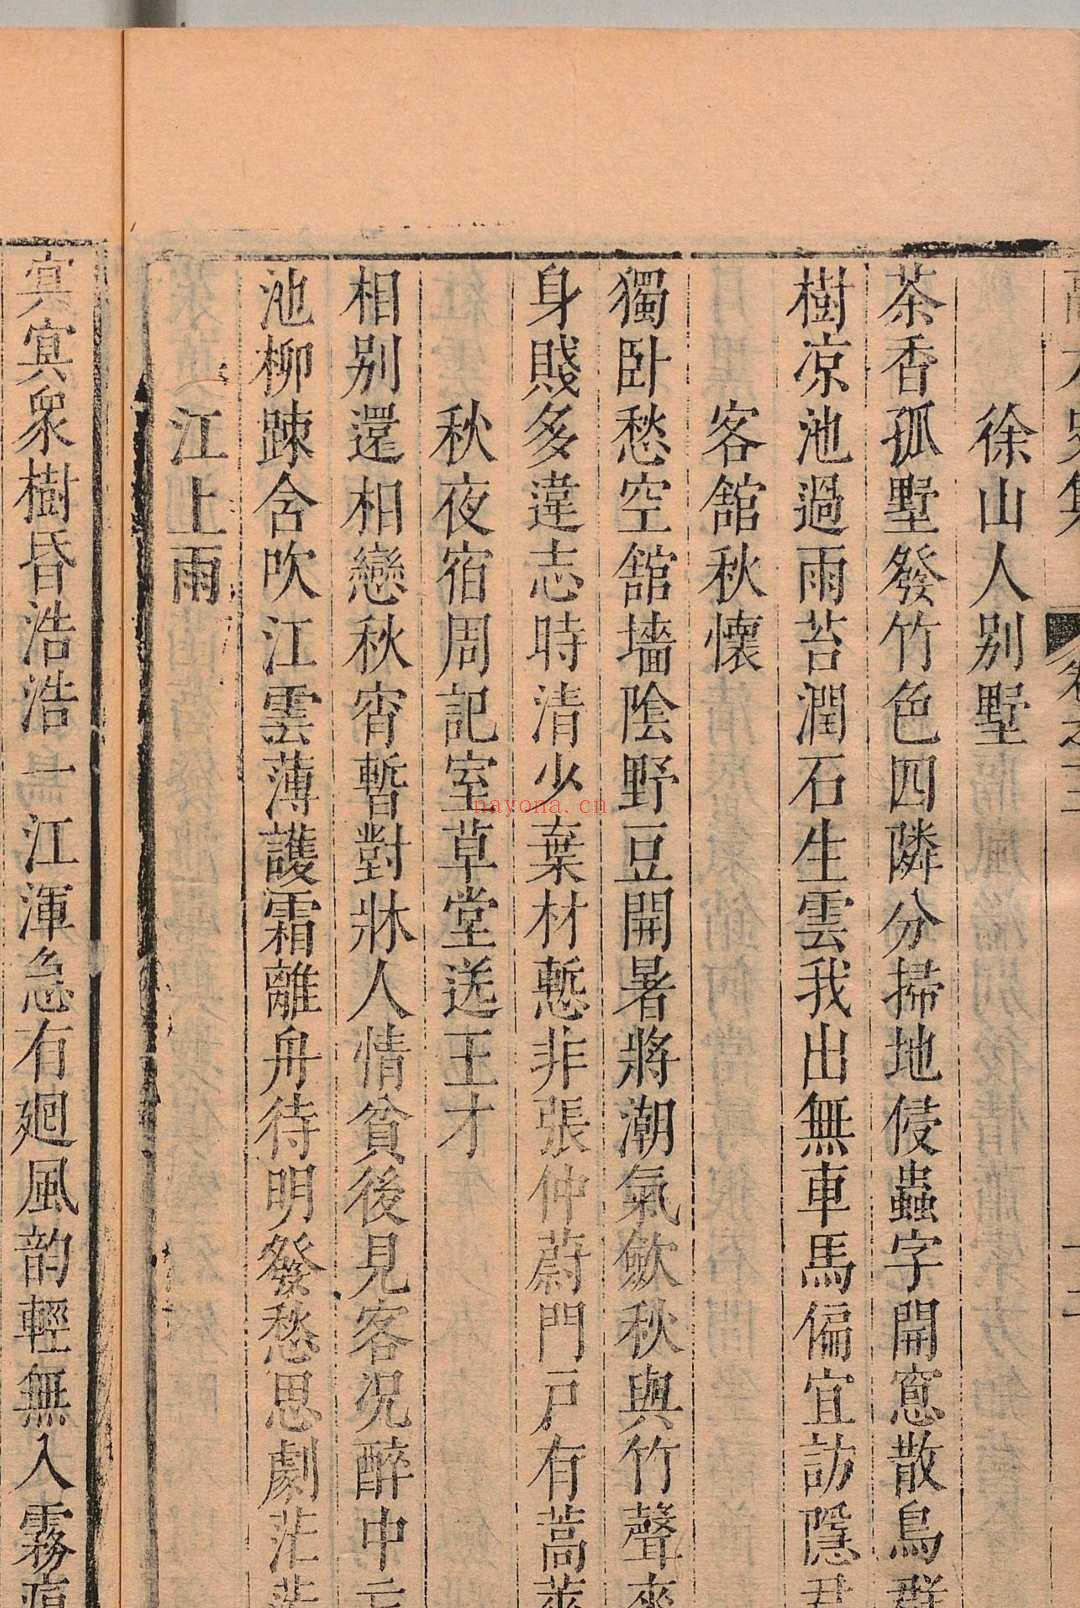 卷之三
十二
徐山人別墅
茶香孤墅發竹色四隣分掃地侵蟲字開窓散鳥群
樹凉池過雨苔潤石生雲我出無車馬偏宜訪隱君
客舘秋懷
獨卧愁空舘墻陰野豆開暑將潮氣歛秋與竹聲來
身賤多違志時清少棄材慙非張仲蔚門戸有蒿萊
秋夜宿周記室草堂送王才
相别還相戀秋宵暫對牀人情貧後見客况醉中
池柳踈含吹江雲薄護霜離舟待明發愁思劇茫茫
江上雨
㝠㝠衆樹昏浩浩一江渾急有廻風韵輕無入霧痕
nayona.cn